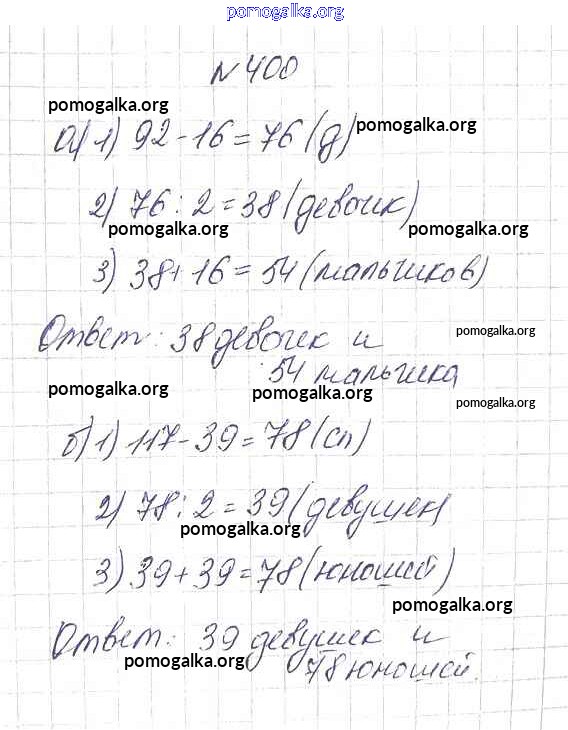 pomogalka.org
N 400
pomogalka.org
а) 1) 92 - 16 = 76 (д) pomogalka.org
2) 76 : 2 = 38 (девочек)
pomogalka.org pomogalka.org
3) 38 + 16 = 54 (мальчиков)
Ответ: 38 девочек и pomogalka.org
54 мальчика
pomogalka.org pomogalka.org pomogalka.org
б) 1) 117 - 39 = 78 (сп)
2) 78 : 2 = 39 (девушек)
pomogalka.org
3) 39 + 39 = 78 (юношей)
pomogalka.org
Ответ: 39 девушек и
pomogalka.org 78 юношей.